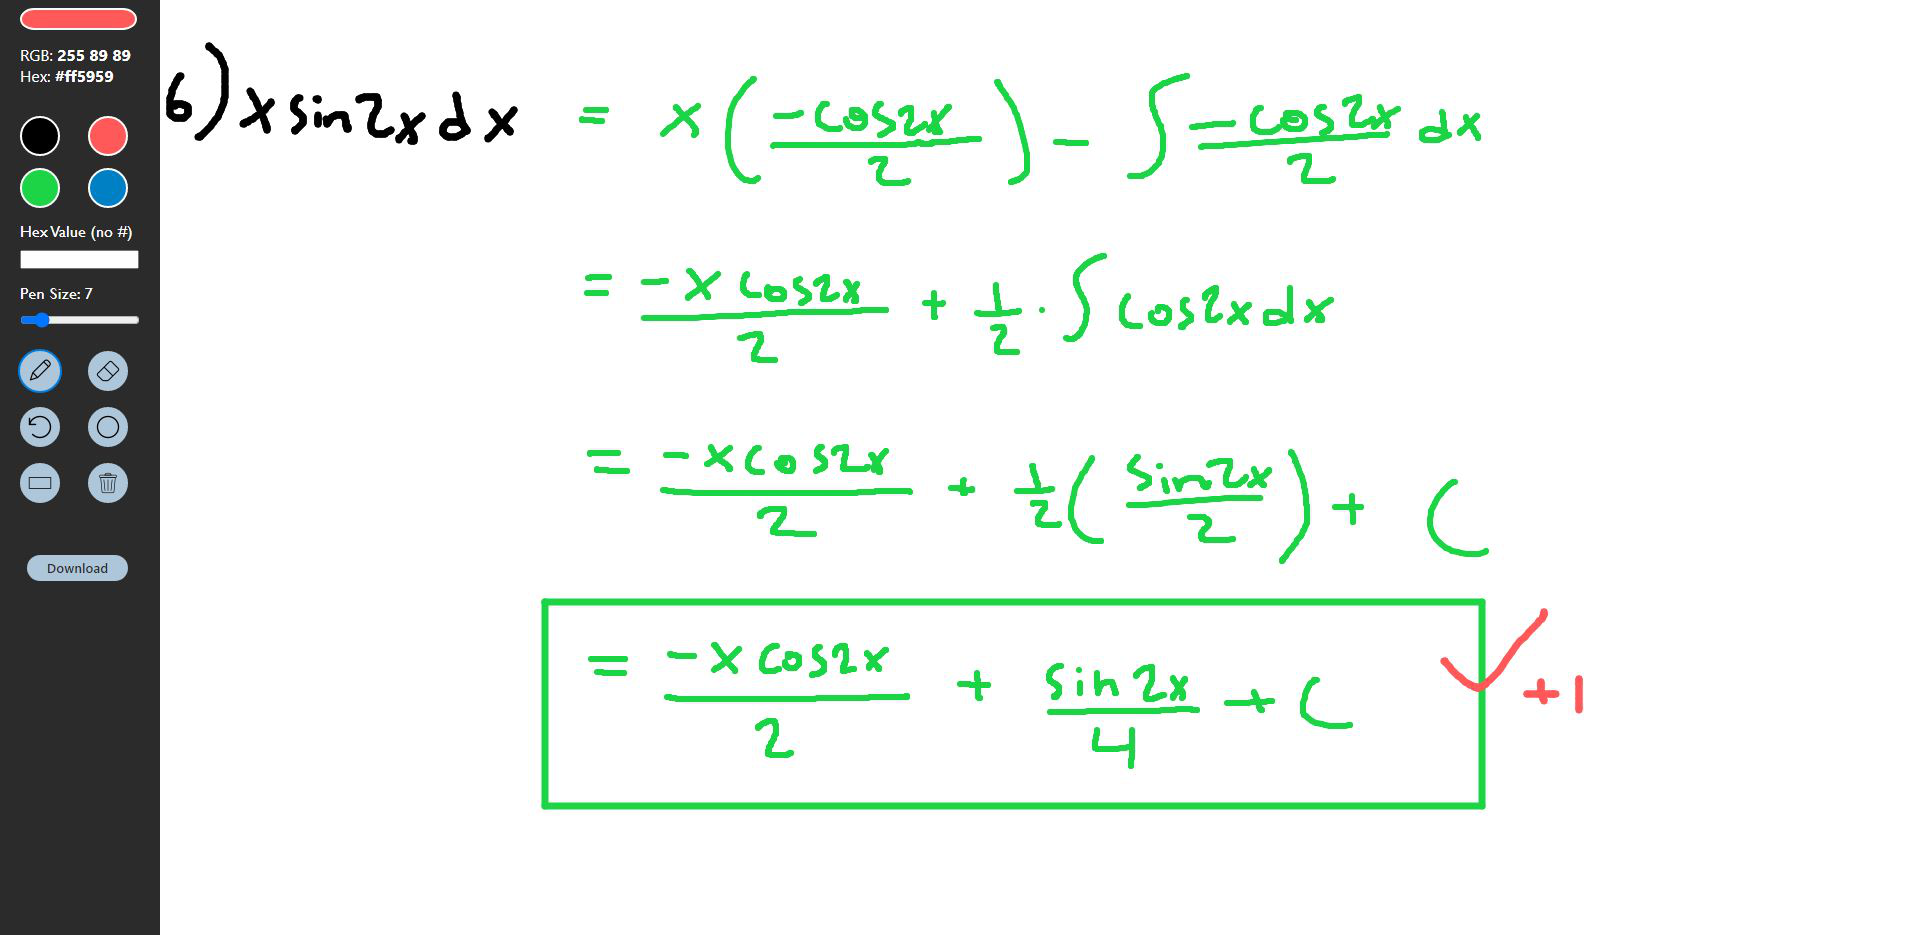 RGB: 255 89 89
Hex: #ff5959
Hex Value (no #)
Pen Size: 7
Download
6) x sin2x dx = x(-cos2x/2) - ∫ -cos2x/2 dx
= -x cos2x/2 + 1/2 · ∫ cos2x dx
= -x cos2x/2 + 1/2 (sin2x/2) + C
= -x cos2x/2 + sin2x/4 + C
+1